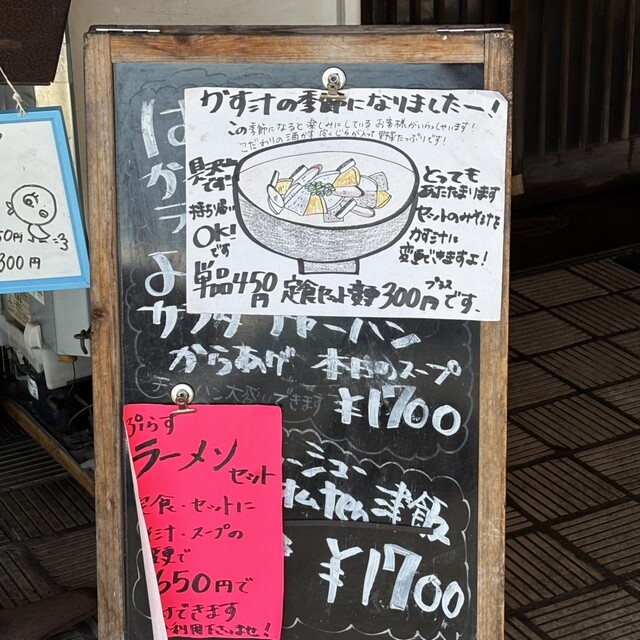 かす汁の季節になりましたー!
この季節になると楽しみにしているお客様がいらっしゃいます!
こだわりの酒かす 野菜たっぷりです!
具沢山
です!
持ち帰り
OK!
です
単品450円
とっても
あたたまります
セットのみそ汁を
かす汁に
変更できますよ!
定食セット変更300円プラスです。
は
か
ラ
よ
サラダ チャーハン
からあげ 本日のスープ
チャーハン大盛りできます
¥1700
ーミュー
天津飯
¥1700
ぷらす
ラーメンセット
定食・セットに
汁・スープの
変更で
650円で
できます
利用下さいませ!
50円
300円